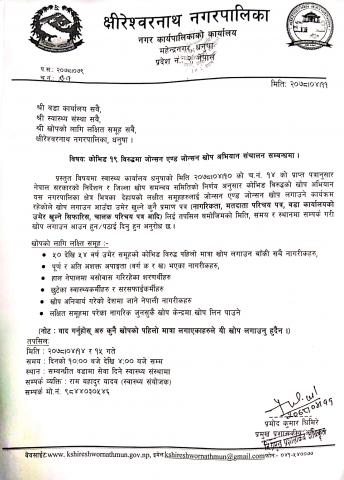 क्षीरेश्वरनाथ नगरपालिका
नगर कार्यपालिकाको कार्यालय
महेन्द्रनगर, धनुषा
प्रदेश नं. नेपाल
प.स: २०७८/०७९
च.नं.:
मिति: २०७८/०४/११
श्री वडा कार्यालय सबै,
श्री स्वास्थ्य संस्था सबै,
श्री खोपको लागि लक्षित समूह सबै,
क्षीरेश्वरनाथ नगरपालिका, धनुषा ।
विषयः कोभिड १९ विरुद्धमा जोन्सन एण्ड जोन्सन खोप अभियान संचालन सम्बन्धमा ।
प्रस्तुत विषयमा स्वास्थ्य कार्यालय धनुषाको मिति २०७८/०४/१० को च.नं. १४ को प्राप्त पत्रानुसार
नेपाल सरकारको निर्देशन र जिल्ला खोप समन्वय समितिको निर्णय अनुसार कोभिड विरुद्धको खोप अभियान
यस नगरपालिका क्षेत्र भित्रका देहायको लक्षित समूहहरूलाई जोन्सन एण्ड जोन्सन खोप लगाउने कार्यक्रम
रहेकोले खोप लगाउन आउँदा उमेर खुल्ने कुनै प्रमाण पत्र (नागरिकता, मतदाता परिचय पत्र, वडा कार्यालयको
उमेर खुल्ने सिफारिस, चालक परिचय पत्र आदि) लिई तपसिल बमोजिमको मिति, समय र स्थानमा सम्पर्क गरी
खोप लगाउन आउन हुन/पठाई दिनु हुन अनुरोध छ ।
खोपको लागि लक्षित समूह :-
• ५० देखि ५४ वर्ष उमेर समूहको कोभिड विरुद्ध पहिलो मात्रा खोप लगाउन बाँकी सबै नागरिकहरु,
• पूर्ण र अति अशक्त अपाङ्गता (वर्ग क र ख) भएका नागरीकहरू,
• हाल नेपालमा बसोबास गरिरहेको शरणार्थीहरू
• छुटेका स्वास्थ्यकर्मीहरु र सरसफाईकर्मीहरू
• खोप अनिवार्य गरेको देशमा जाने नेपाली नागरीकहरू
• लक्षित समूहमा परेका नागरिक जुनसुकै खोप केन्द्रमा खोप लिन पाउने
(नोट : याद गर्नुहोस् अरु कुनै खोपको पहिलो मात्रा लगाएकाहरुले यी खोप लगाउनु हुदैन ।)
तपसिल:
मिति : २०७८/०४/१४ र १५ गते
समय : दिनको १०:०० बजे देखि ४:०० बजे सम्म
स्थान : सम्बन्धीत वडामा सेवा दिने स्वास्थ्य संस्थामा
सम्पर्क व्यक्ति : राम बहादुर यादव (स्वास्थ्य संयोजक)
सम्पर्क मो.नं. ९८४४०३०५४६
२०७८/०४/११
प्रमोद कुमार घिमिरे
प्रमुख प्रशासकीय अधिकृत
वेवसाईटः www.kshireshwornathmun.gov.np, इमेलः kshireshwornathmun@gmail.com